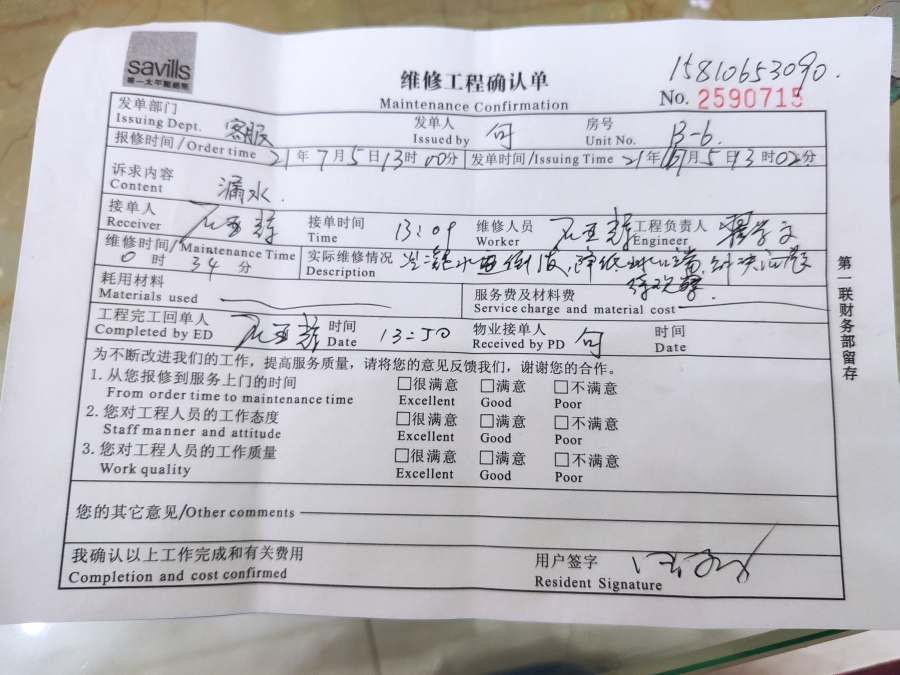 savills
第一太平戴维斯
维修工程确认单
Maintenance Confirmation
15810653090.
No. 2590715
发单部门 Issuing Dept. 客服 发单人 Issued by 句 房号 Unit No. B-6.
报修时间/Order time 21年7月5日13时00分 发单时间/Issuing Time 21年7月5日13时02分
诉求内容 Content 漏水.
接单人 Receiver 接单时间 Time 13:09 维修人员 Worker 工程负责人 Engineer
维修时间/Maintenance Time 0时34分 实际维修情况 Description 冷凝水
耗用材料 Materials used 服务费及材料费 Service charge and material cost
工程完工回单人 Completed by ED 时间 Date 13:50 物业接单人 Received by PD 句 时间 Date
为不断改进我们的工作，提高服务质量，请将您的意见反馈我们，谢谢您的合作。
1. 从您报修到服务上门的时间 □很满意 □满意 □不满意
From order time to maintenance time Excellent Good Poor
2. 您对工程人员的工作态度 □很满意 □满意 □不满意
Staff manner and attitude Excellent Good Poor
3. 您对工程人员的工作质量 □很满意 □满意 □不满意
Work quality Excellent Good Poor
您的其它意见/Other comments
我确认以上工作完成和有关费用 用户签字
Completion and cost confirmed Resident Signature
第一联财务部留存